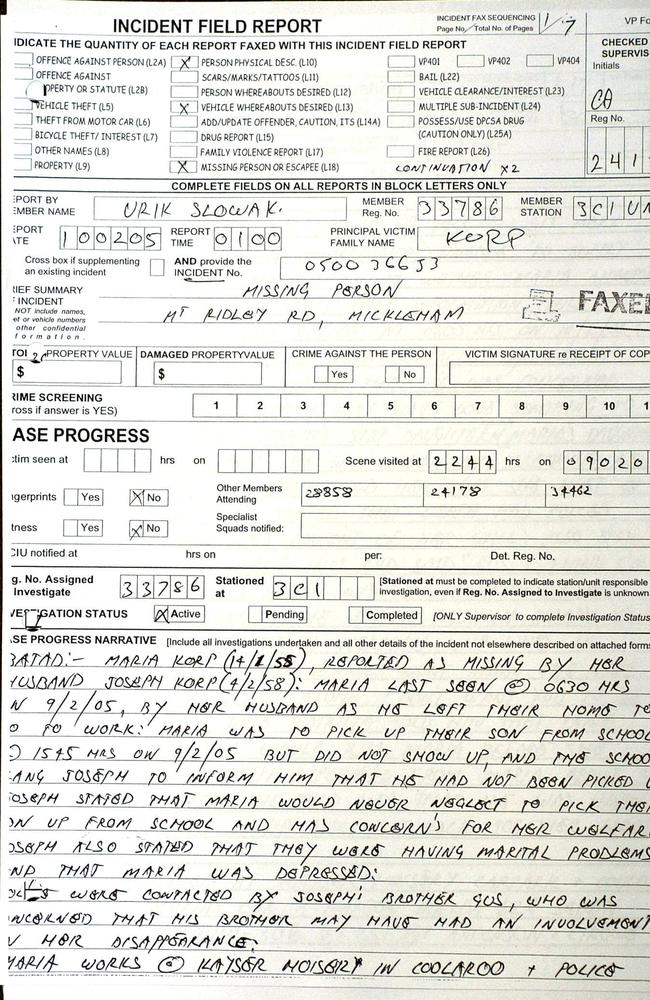 INCIDENT FIELD REPORT
INCIDENT FAX SEQUENCING
Page No./Total No. of Pages
1/7
VP Fo
DICATE THE QUANTITY OF EACH REPORT FAXED WITH THIS INCIDENT FIELD REPORT
CHECKED
SUPERVIS
Initials
CA
Reg No.
2 4 1
OFFENCE AGAINST PERSON (L2A)
X PERSON PHYSICAL DESC. (L10)
VP401 VP402 VP404
OFFENCE AGAINST
SCARS/MARKS/TATTOOS (L11)
BAIL (L22)
OPERTY OR STATUTE (L2B)
PERSON WHEREABOUTS DESIRED (L12)
VEHICLE CLEARANCE/INTEREST (L23)
VEHICLE THEFT (L5)
X VEHICLE WHEREABOUTS DESIRED (L13)
MULTIPLE SUB-INCIDENT (L24)
THEFT FROM MOTOR CAR (L6)
ADD/UPDATE OFFENDER, CAUTION, ITS (L14A)
POSSESS/USE DPCSA DRUG
BICYCLE THEFT/ INTEREST (L7)
DRUG REPORT (L15)
(CAUTION ONLY) (L25A)
OTHER NAMES (L8)
FAMILY VIOLENCE REPORT (L17)
FIRE REPORT (L26)
PROPERTY (L9)
X MISSING PERSON OR ESCAPEE (L18)
CONTINUATION X2
COMPLETE FIELDS ON ALL REPORTS IN BLOCK LETTERS ONLY
EPORT BY
EMBER NAME
URIK SLOWAK.
MEMBER
Reg. No.
33786
MEMBER
STATION
3CI UN
EPORT
ATE
100205
REPORT
TIME
0100
PRINCIPAL VICTIM
FAMILY NAME
KORP
Cross box if supplementing
an existing incident
AND provide the
INCIDENT No.
050036653
IEF SUMMARY
INCIDENT
NOT include names,
et or vehicle numbers
other confidential
formation.
MISSING PERSON
MT RIDLEY RD, MICKLEHAM
FAXE
PROPERTY VALUE
$
DAMAGED PROPERTYVALUE
$
CRIME AGAINST THE PERSON
Yes No
VICTIM SIGNATURE re RECEIPT OF COP
RIME SCREENING
ross if answer is YES)
1 2 3 4 5 6 7 8 9 10 1
ASE PROGRESS
ctim seen at hrs on
Scene visited at 2244 hrs on 09020
gerprints Yes X No
Other Members
Attending
28858 24178 34462
tness Yes X No
Specialist
Squads notified:
CIU notified at hrs on per: Det. Reg. No.
g. No. Assigned
Investigate
33786
Stationed
at
3CI
[Stationed at must be completed to indicate station/unit responsible
investigation, even if Reg. No. Assigned to Investigate is unknown
VESTIGATION STATUS X Active Pending Completed [ONLY Supervisor to complete Investigation Status
SE PROGRESS NARRATIVE [Include all investigations undertaken and all other details of the incident not elsewhere described on attached forms
BATAD:- MARIA KORP (14/1/55), REPORTED AS MISSING BY HER
HUSBAND JOSEPH KORP (4/2/58): MARIA LAST SEEN @ 0630 HRS
N 9/2/05, BY HER HUSBAND AS HE LEFT THEIR HOME TO
O TO WORK: MARIA WAS TO PICK UP THEIR SON FROM SCHOOL
1545 HRS ON 9/2/05 BUT DID NOT SHOW UP, AND THE SCHOO
ANG JOSEPH TO INFORM HIM THAT HE HAD NOT BEEN PICKED U
JOSEPH STATED THAT MARIA WOULD NEVER NEGLECT TO PICK THEI
ON UP FROM SCHOOL AND HAS CONCERN'S FOR HER WELFAR
OSEPH ALSO STATED THAT THEY WERE HAVING MARITAL PROBLEMS
ND THAT MARIA WAS DEPRESSED:
WERE CONTACTED BY JOSEPH'S BROTHER GUS, WHO WAS
NCERNED THAT HIS BROTHER MAY HAVE HAD AN INVOLVEMENT
N HER DISAPPEARANCE:
MARIA WORKS @ KAYSER HOISERY IN COOLAROO + POLICE